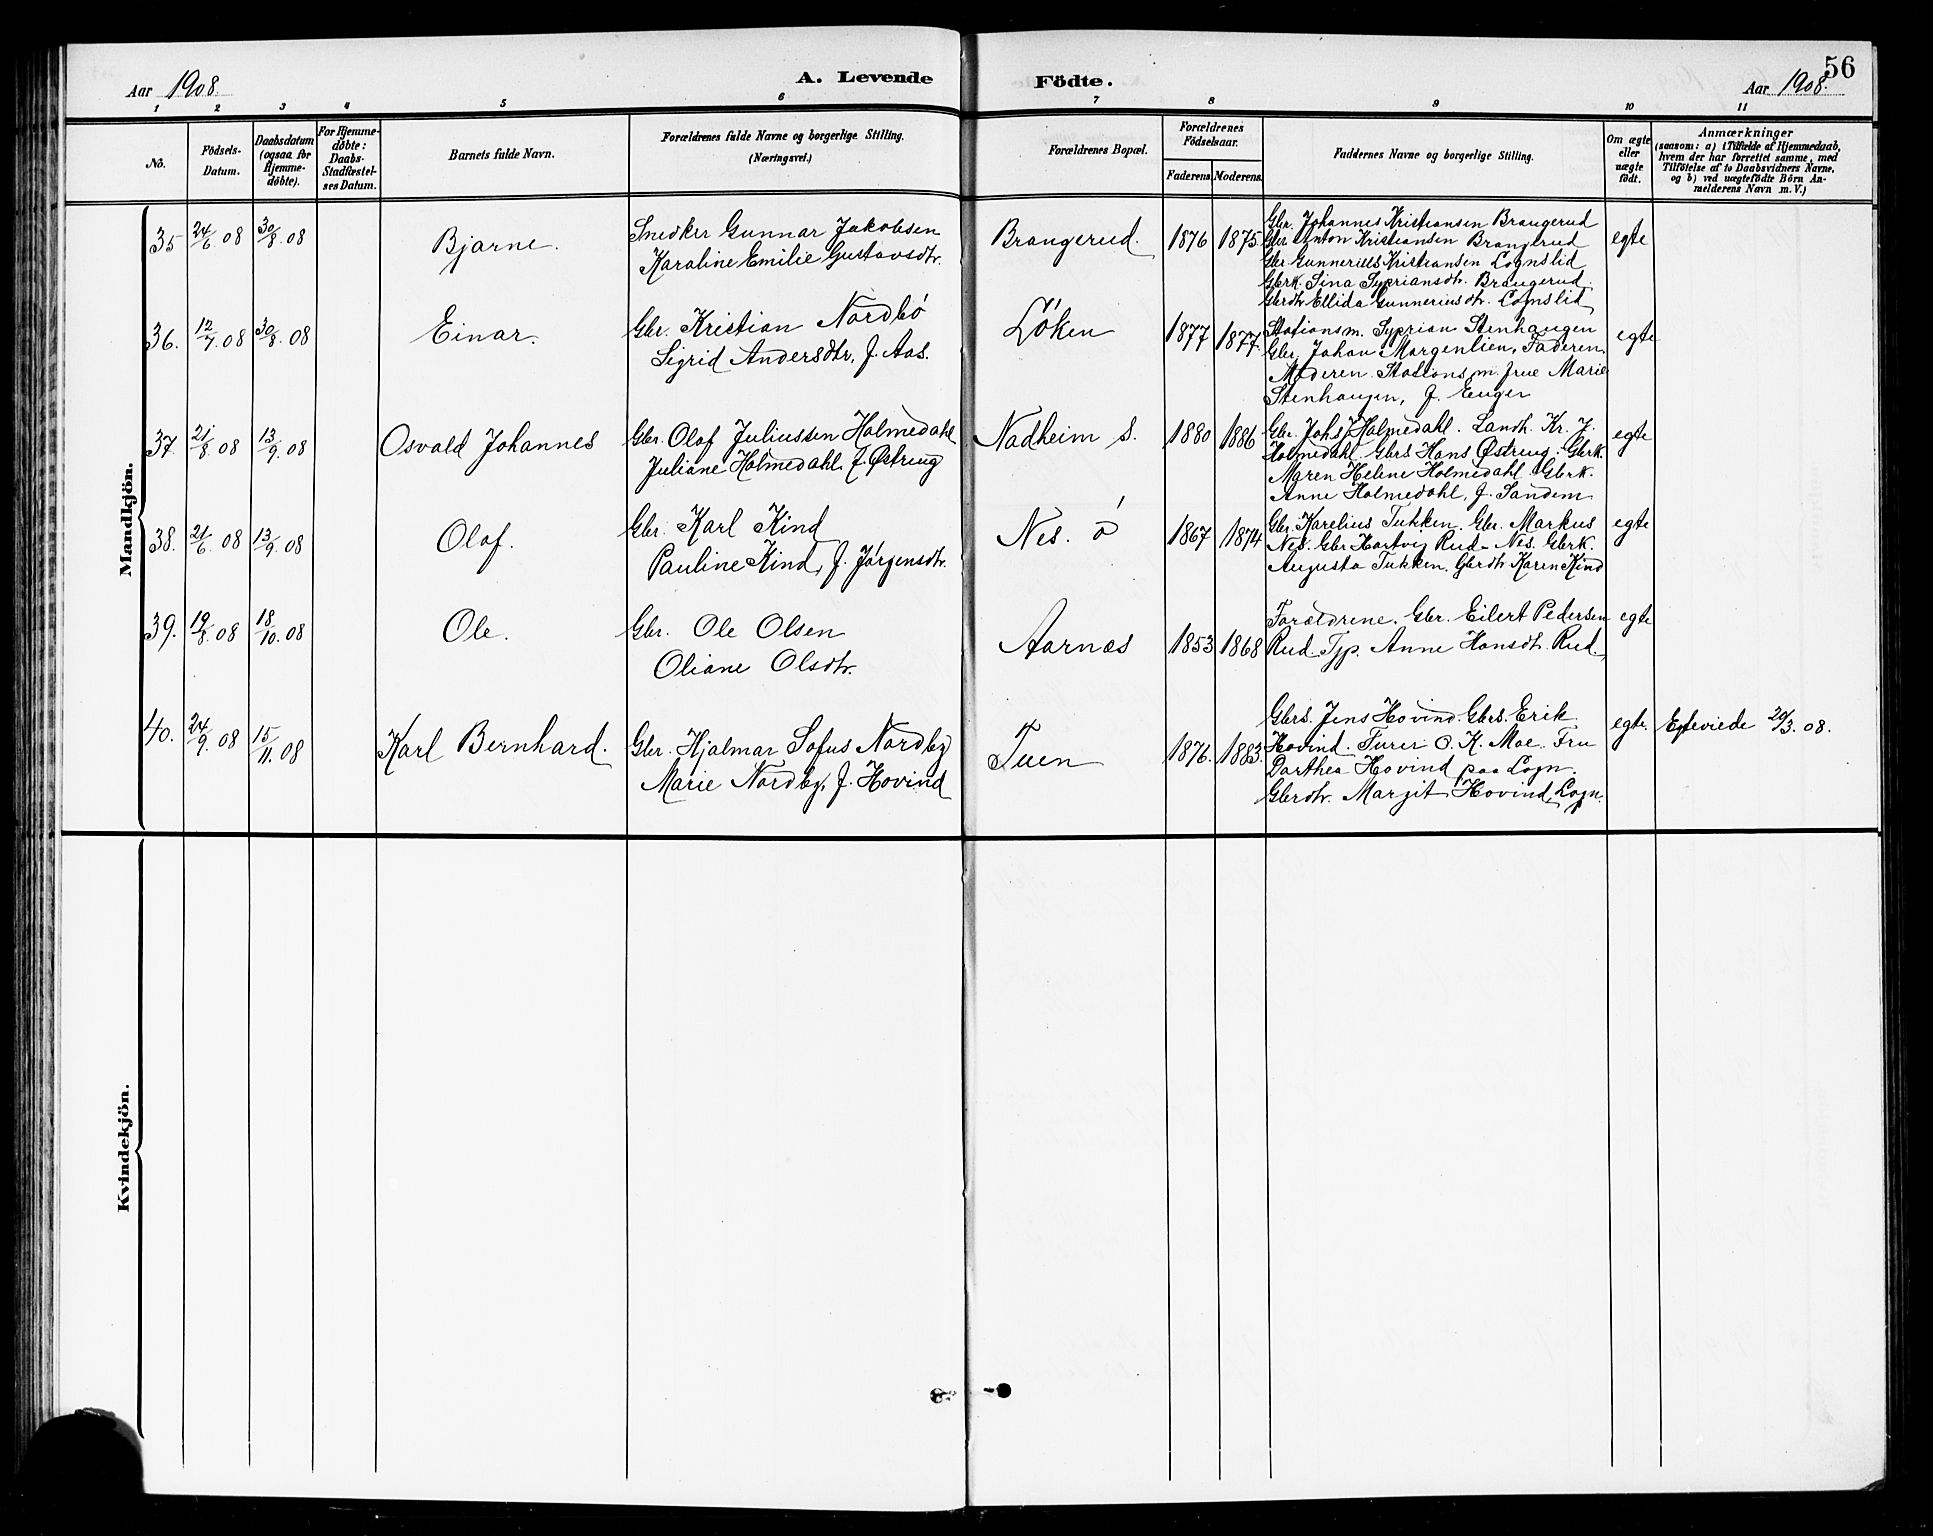 56
Aar 1908. A. Levende Födte. Aar 1908.
1 2 3 4 5 6 7 8 9 10 11
No. Födsels-Datum. Daabsdatum (ogsaa for Hjemme-döbte). For Hjemme-döbte: Daabs-Stadfæstel-ses Datum. Barnets fulde Navn. Forældrenes fulde Navne og borgerlige Stilling. (Næringsvei.) Forældrenes Bopæl. Forældrenes Födselsaar. Faderens Moderens Faddernes Navne og borgerlige Stilling. Om ægte eller uægte födt. Anmærkninger
(saasom: a) i Tilfælde af Hjemmedaab,
hvem der har forrettet samme, med
Tilföielse af to Daabsvidners Navne.
og b) ved uægtefödte Börn An-
melderens Navn m. V.)
Mandkjön.
35 24/6 08 30/8 08 Bjarne. Snedker Gunnar Jakobsen
Karoline Emilie Gustavsdtr. Brangerud. 1876 1875 Gbr. Johannes Kristiansen Brangerud
Gbr. Anton Kristiansen Brangerud
Gbr. Gunnerius Kristiansen
Gbrk. Sina Sypriansdtr. Brangerud.
Gbrdtr. Ellida Gunneriusdtr. egte
36. 12/7 08 30/8 08 Einar. Gbr. Kristian Nordbö
Sigrid Andersdtr, f. Aas. Löken 1877 1877. Stationsm. Syprian Stenhaugen
Gbr. Johan Morgenlien, Faderen.
Moderen. Stationsm. frue Marie
Stenhaugen, f. Enger egte
37. 21/8 08 13/9 08 Osvald Johannes Gbr. Olaf Juliussen Holmedahl
Juliane Holmedahl, f. Østreng Nadheim s. 1880 1886 Gbr. Johs. Holmedahl. Landh. Kr. J.
Holmedahl. Gbrs Hans Østreng. Gbrk.
Maren Helene Holmedahl Gbrk.
Anne Holmedahl, f. Sandem egte
38. 21/6 08 13/9 08 Olaf. Gbr. Karl Kind
Pauline Kind, f. Jörgensdtr. Nes. ö 1867 1874 Gbr. Karelius Tukken. Gbr. Markus
Nes. Gbr Hartvig Rud - Nes. Gbrk.
Augusta Tukken. Gbrdtr. Karen Kind egte
39. 19/8 08 18/10 08 Ole. Gbr. Ole Olsen
Oliane Olsdtr. Aarnæs 1853 1868 Forældrene. Gbr. Eilert Pedersen
Rud. Tjp. Anne Hansdtr. Rud. egte
40. 24/9 08 15/11 08 Karl Bernhard. Gbr. Hjalmar Sofus Nordby
Marie Nordby, f. Hovind Tuen 1876. 1883. Gbrs. Jens Hovind. Gbrs. Erik
Hovind. O. K. Moe. Fru
Dorthea Hovind paa Logn.
Gbrdtr. Margit Hovind, Logn. egte. Egteviede 20/3 08.
Kvindekjön.